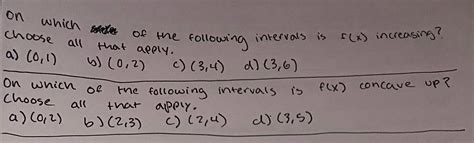 On which of the following intervals is f(x) increasing?
Choose all that apply.
a) (0,1) b) (0,2) c) (3,4) d) (3,6)
On which of the following intervals is f(x) concave up?
Choose all that apply.
a) (0,2) b) (2,3) c) (2,4) d) (3,5)